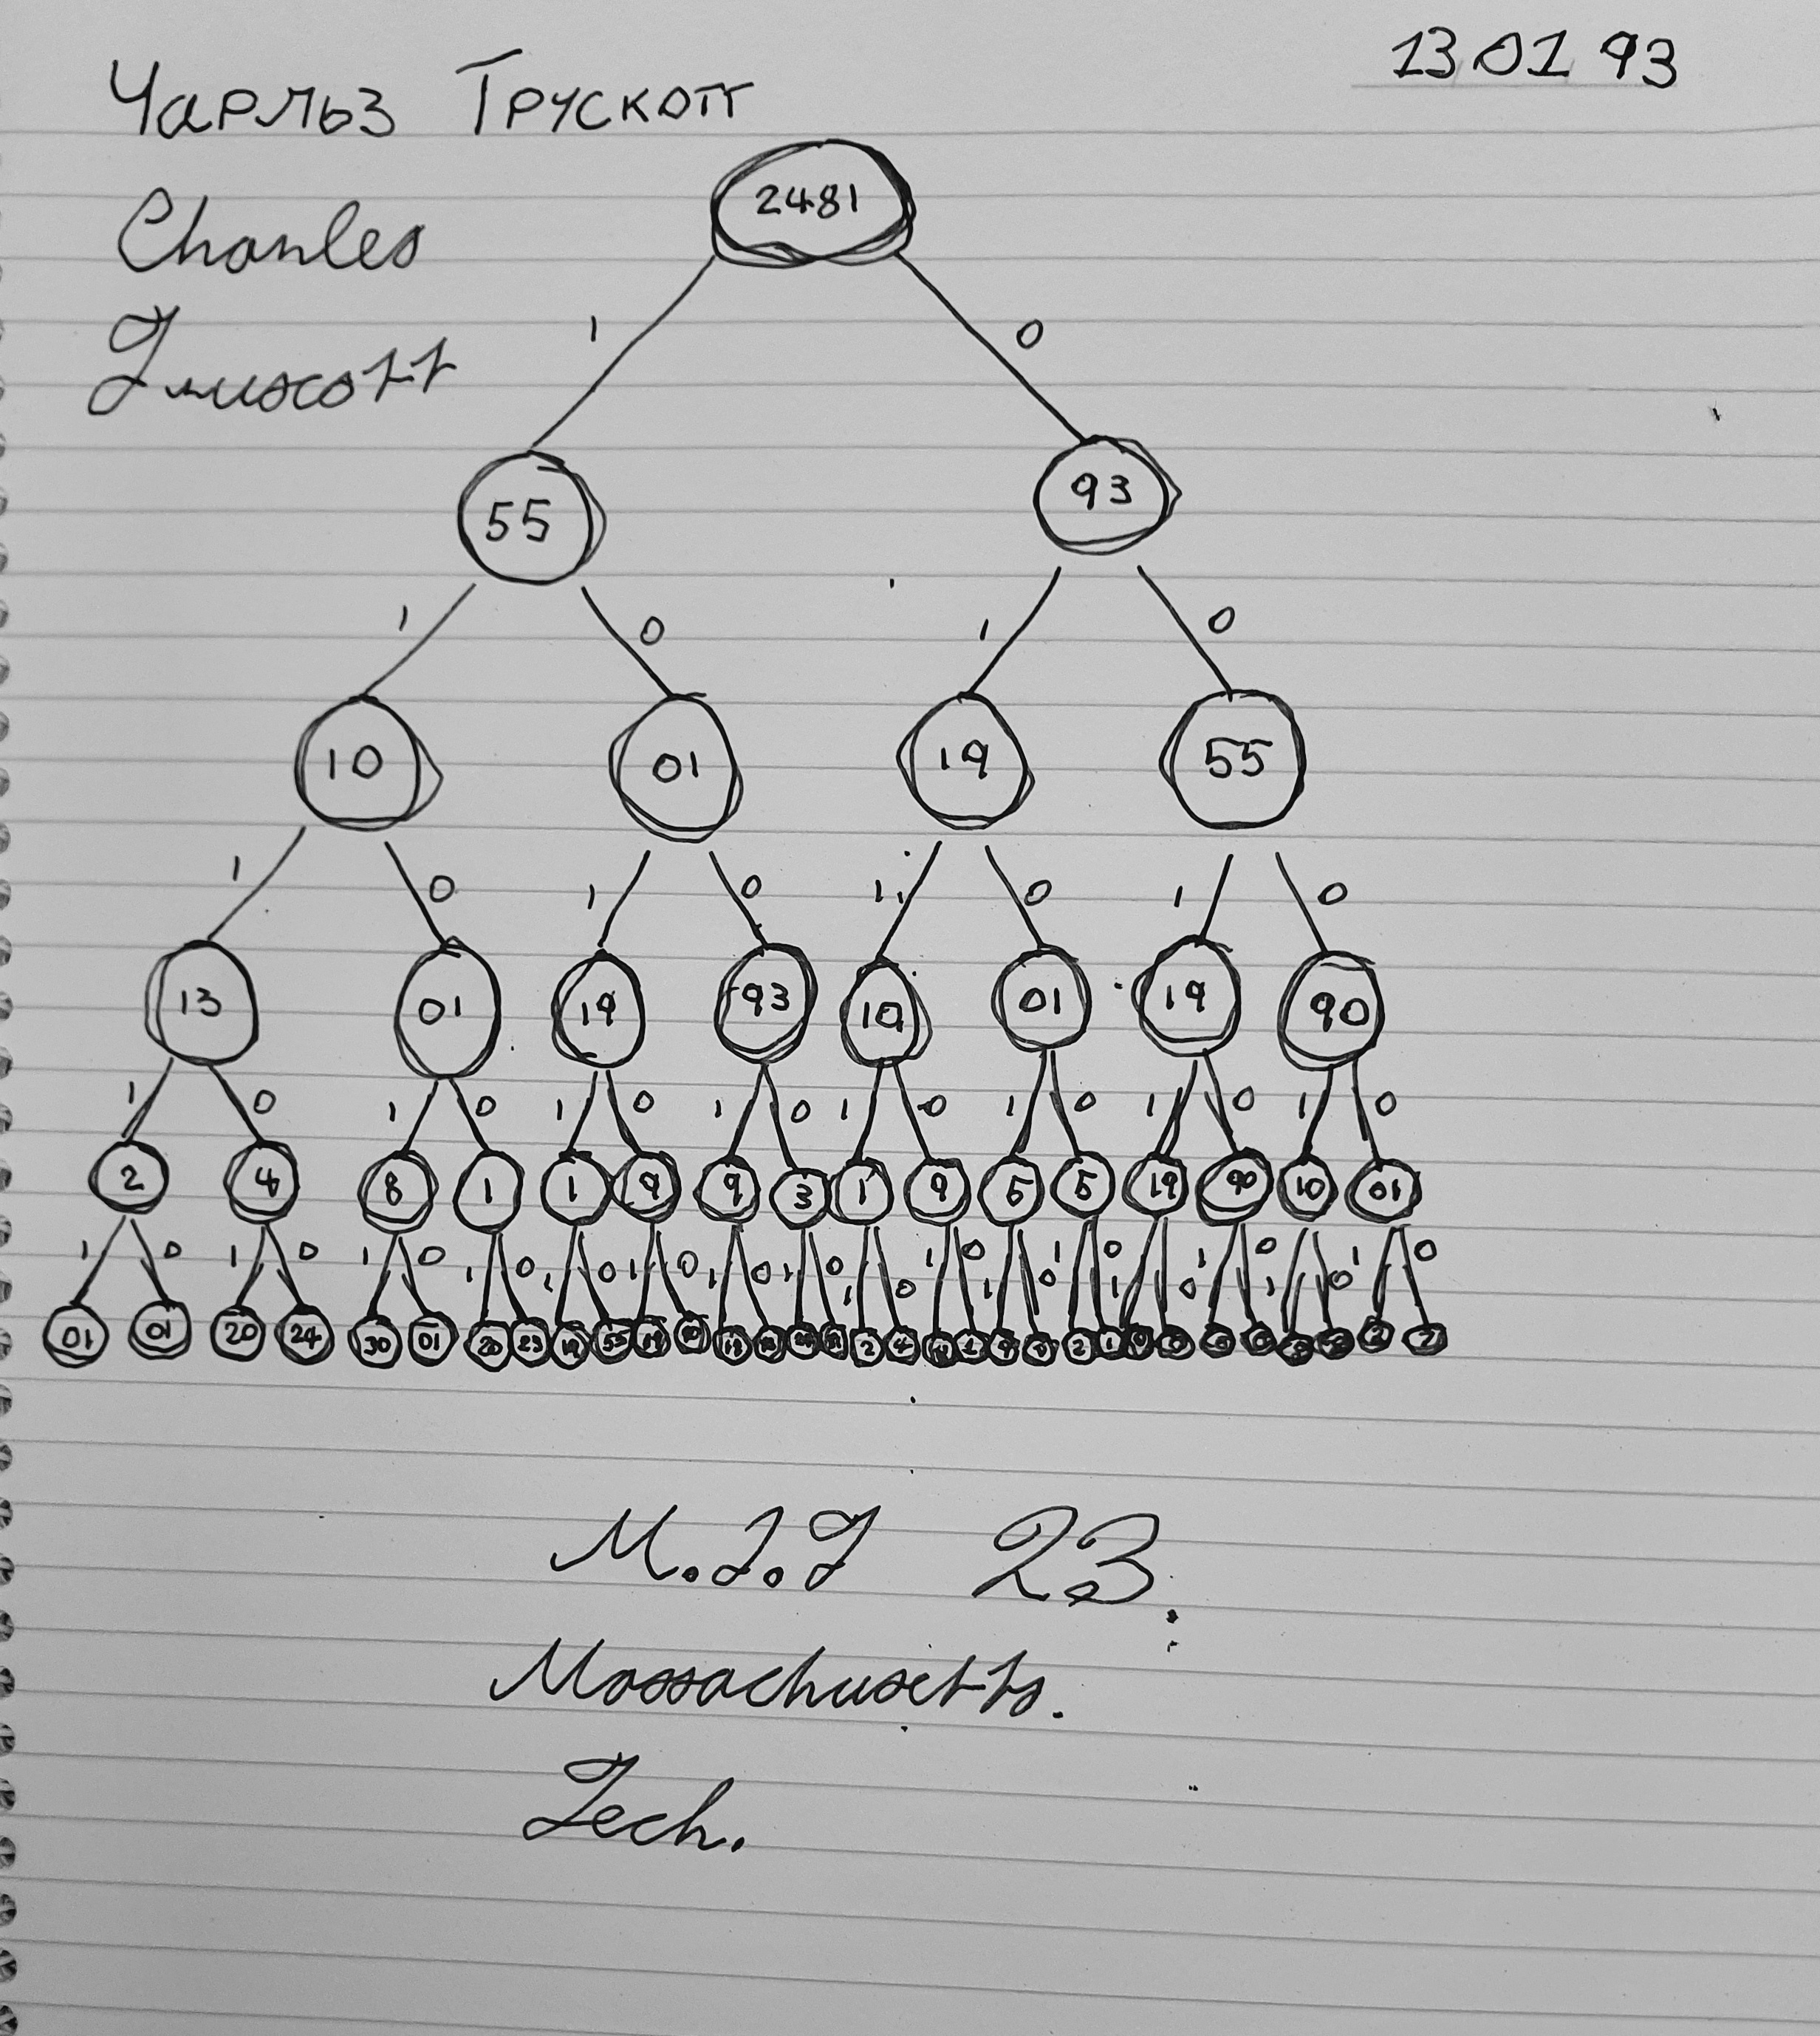 13 01 93
Чарльз Трускотт
Charles
Truscott
2481
1 0
55 93
1 0 1 0
10 01 19 55
1 0 1 0 1 0 1 0
13 01 19 93 19 01 19 90
1 0 1 0 1 0 1 0 1 0 1 0 1 0 1 0
2 4 8 1 1 9 9 3 1 9 5 5 19 90 10 01
1 0 1 0 1 0 1 0 1 0 1 0 1 0 1 0 1 0 1 0 1 0 1 0 1 0 1 0 1 0 1 0
01 01 20 24 30 01 20 23 19 55 19 2 4
M.I.T 23.
Massachusetts.
Tech.